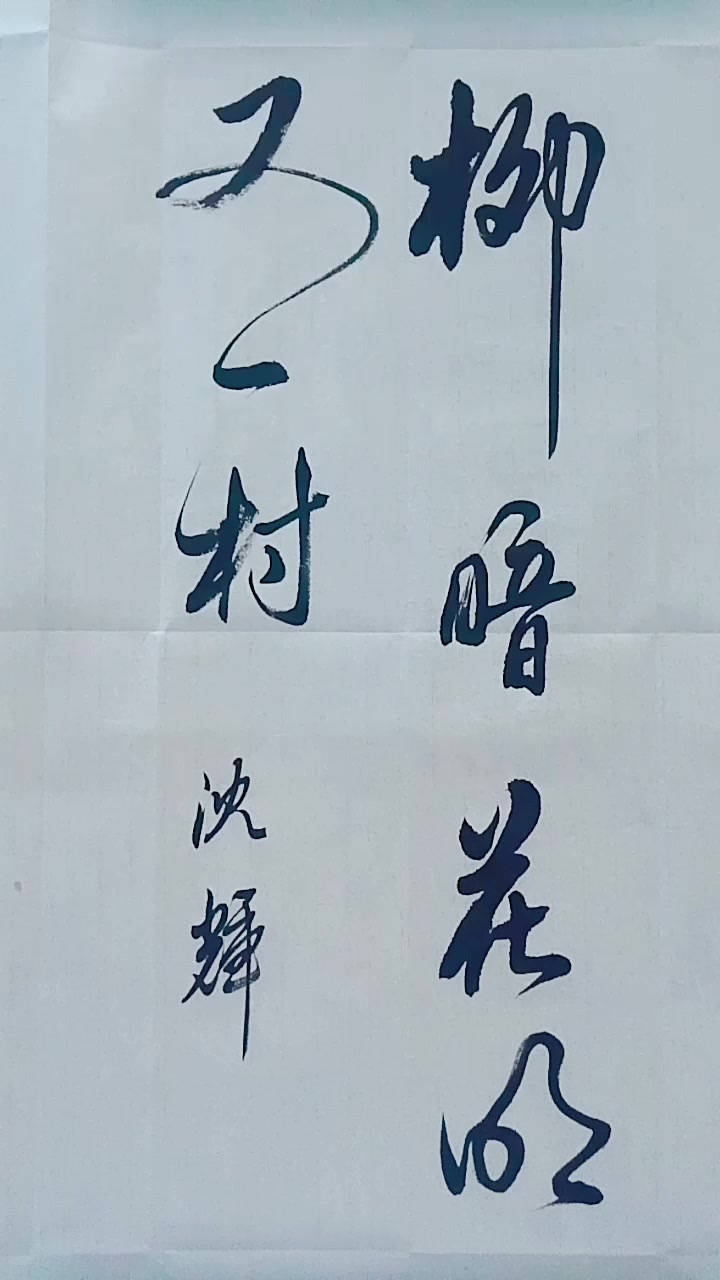 柳暗花明
又一村
沈辉